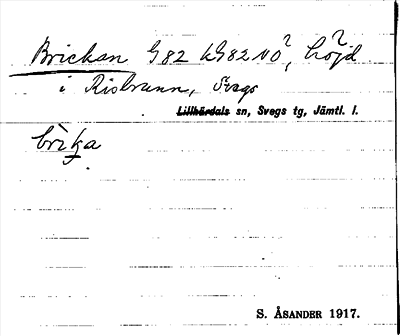 Brickan G82 kG82NO?, höjd
i Risbrunn, Svegs
Lillhärdals sn, Svegs tg, Jämtl. l.
brika
S. ÅSANDER 1917.